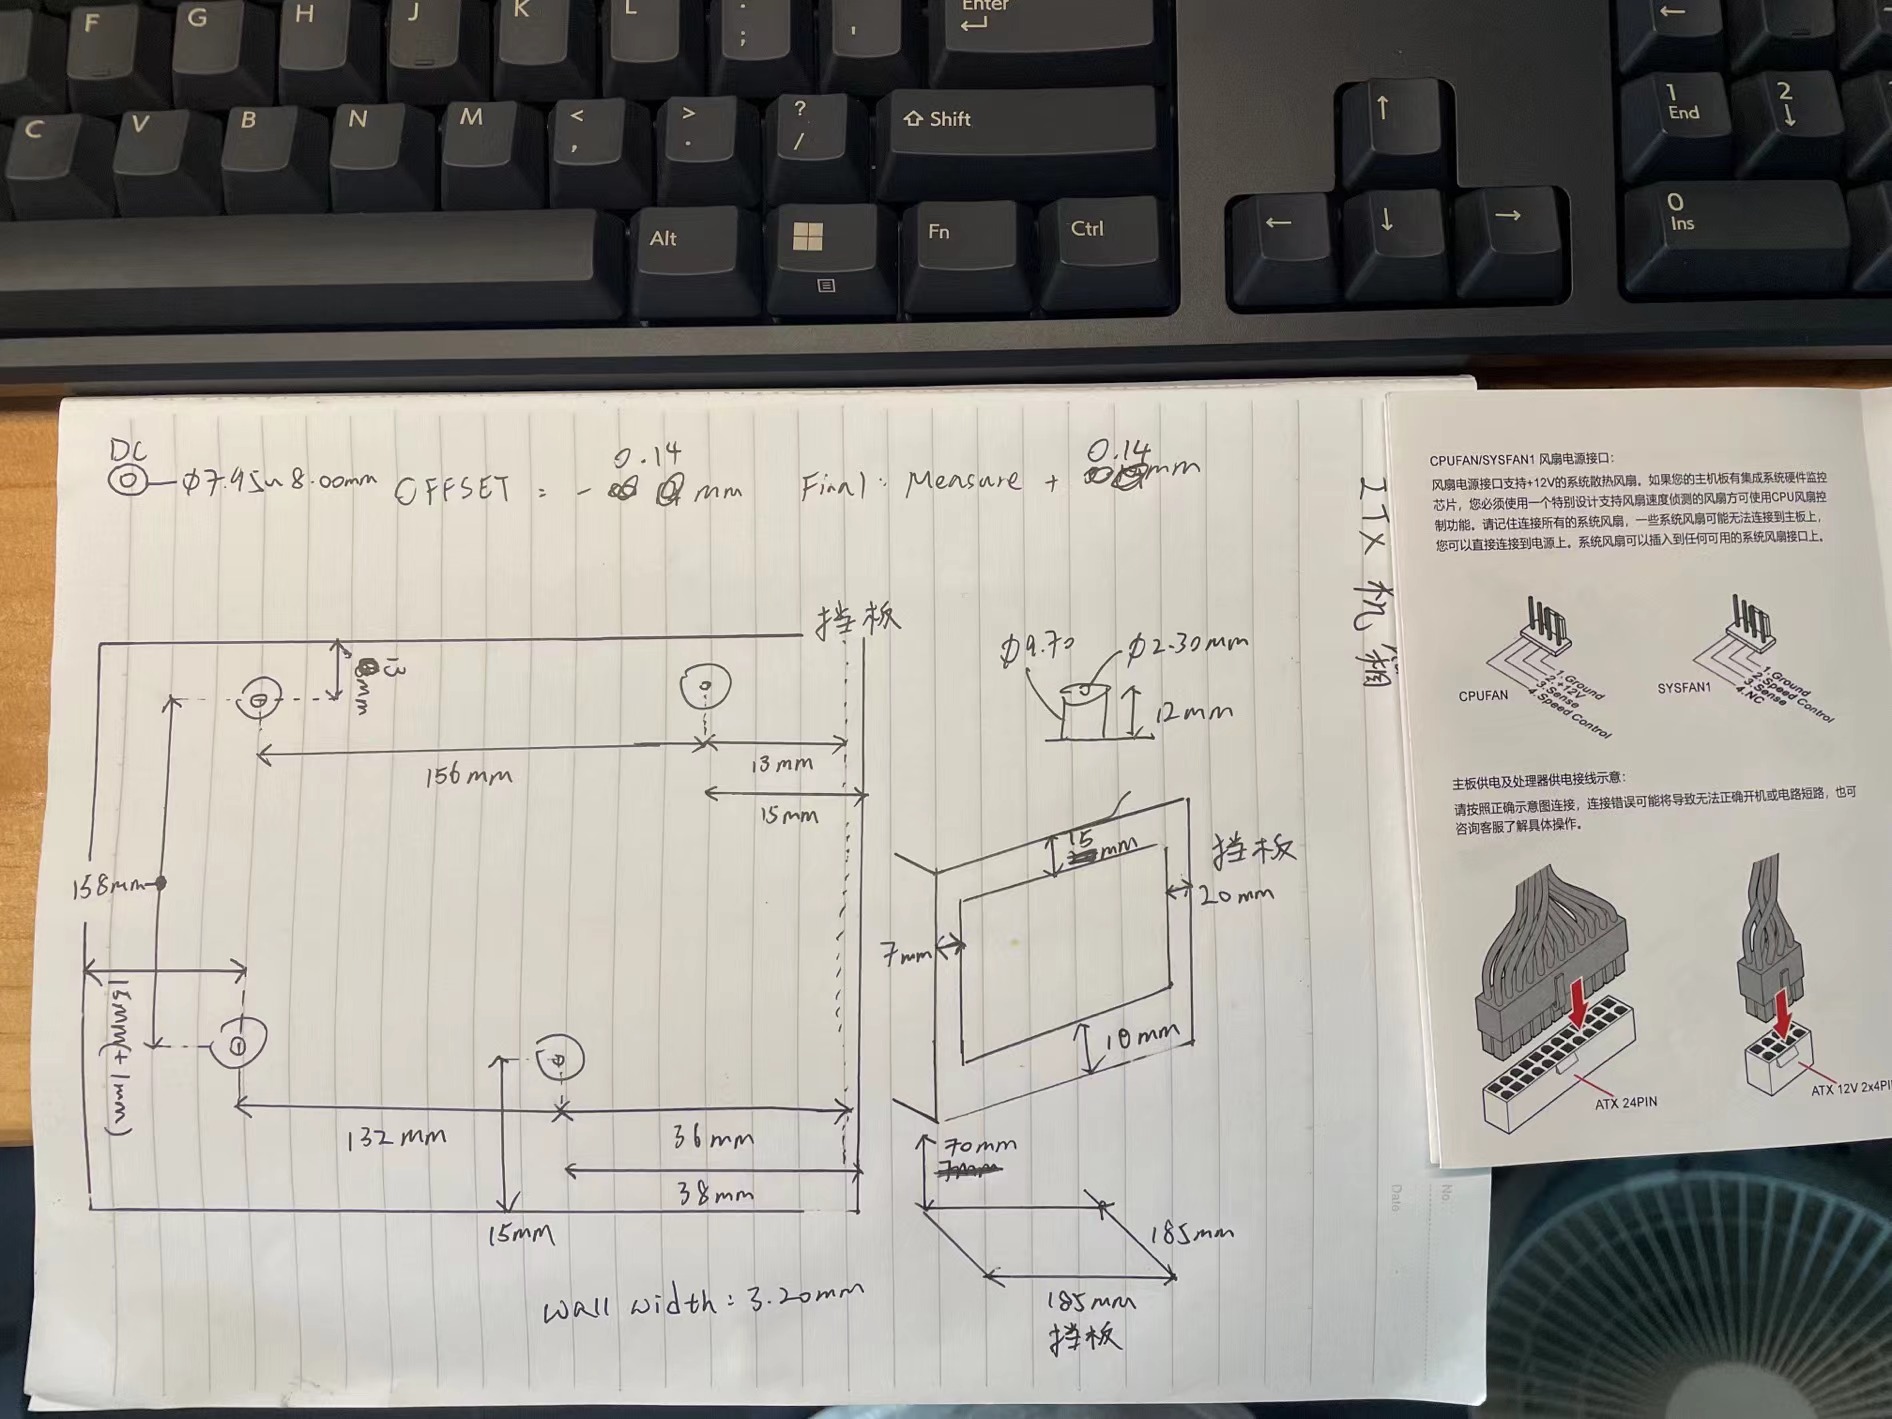 F G H J K L : ; ' Enter
C V B N M < , > . ? / Shift
Alt Fn Ctrl
1 End 2
0 Ins
DC
Φ7.95~8.00mm
OFFSET : -0.14 mm
Final: Measure + 0.14 mm
ITX 机箱
挡板
13mm
156mm
13mm
15mm
158mm
15mm(+1mm)
132mm
36mm
38mm
15mm
Wall width: 3.20mm
Φ9.70
Φ2.30mm
12mm
15mm
挡板
20mm
7mm
10mm
70mm
185mm
185mm
挡板
No
Date
CPUFAN/SYSFAN1 风扇电源接口:
风扇电源接口支持+12V的系统散热风扇。如果您的主机板有集成系统硬件监控
芯片，您必须使用一个特别设计支持风扇速度侦测的风扇方可使用CPU风扇控
制功能。请记住连接所有的系统风扇，一些系统风扇可能无法连接到主板上，
您可以直接连接到电源上。系统风扇可以插入到任何可用的系统风扇接口上。
CPUFAN
1.Ground
2.+12V
3.Sense
4.Speed Control
SYSFAN1
1.Ground
2.Speed Control
3.Sense
4.NC
主板供电及处理器供电接线示意:
请按照正确示意图连接，连接错误可能将导致无法正确开机或电路短路，也可
咨询客服了解具体操作。
ATX 24PIN
ATX 12V 2x4PI